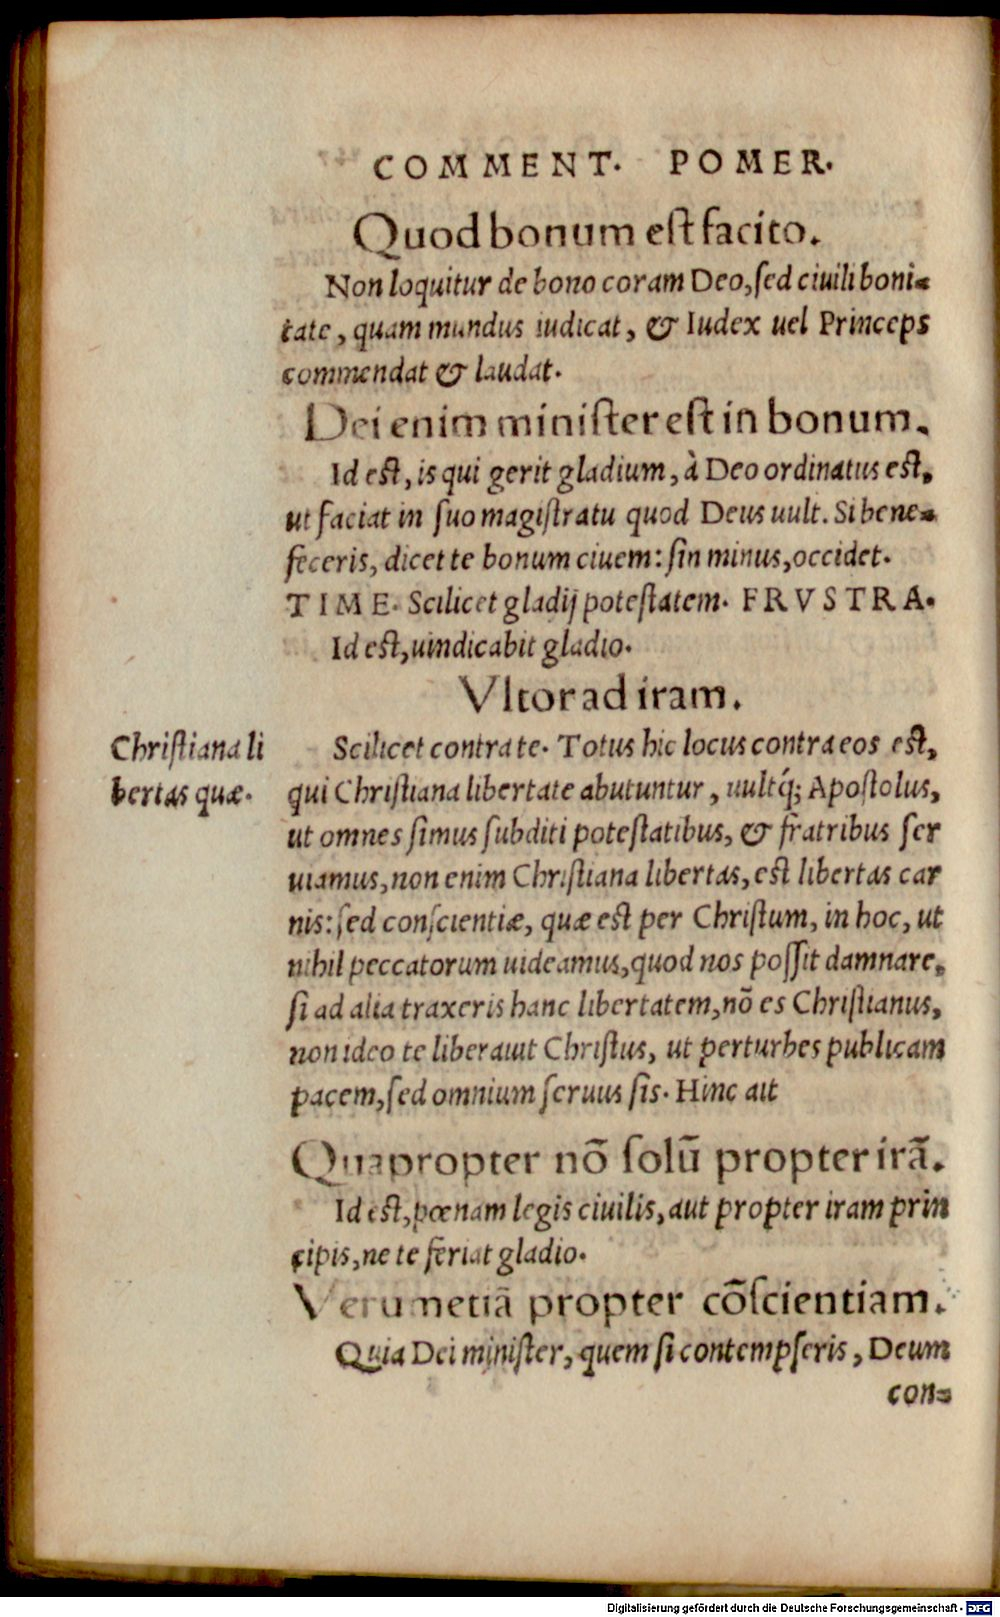 COMMENT. POMER.
Quod bonum eſt facito.
Non loquitur de bono coram Deo, ſed ciuili boni-
tate, quam mundus iudicat, & Iudex uel Princeps
commendat & laudat.
Dei enim miniſter eſt in bonum.
Id eſt, is qui gerit gladium, à Deo ordinatus eſt,
ut faciat in ſuo magiſtratu quod Deus uult. Si bene-
feceris, dicet te bonum ciuem: ſin minus, occidet.
TIME. Scilicet gladij poteſtatem. FRVSTRA.
Id eſt, uindicabit gladio.
Vltor ad iram.
Christiana li
bertas quæ.
Scilicet contra te. Totus hic locus contra eos eſt,
qui Chriſtiana libertate abutuntur, uultq́; Apoſtolus,
ut omnes ſimus ſubditi poteſtatibus, & fratribus ſer
uiamus, non enim Chriſtiana libertas, eſt libertas car
nis: ſed conſcientiæ, quæ eſt per Chriſtum, in hoc, ut
nihil peccatorum uideamus, quod nos poſſit damnare,
ſi ad alia traxeris hanc libertatem, nõ es Chriſtianus,
non ideo te liberauit Chriſtus, ut perturbes publicam
pacem, ſed omnium ſeruus ſis. Hinc ait
Quapropter nõ ſolũ propter irã.
Id eſt, pœnam legis ciuilis, aut propter iram prin
cipis, ne te feriat gladio.
Verumetiã propter cõſcientiam.
Quia Dei miniſter, quem ſi contempſeris, Deum
con-
Digitalisierung gefördert durch die Deutsche Forschungsgemeinschaft - DFG